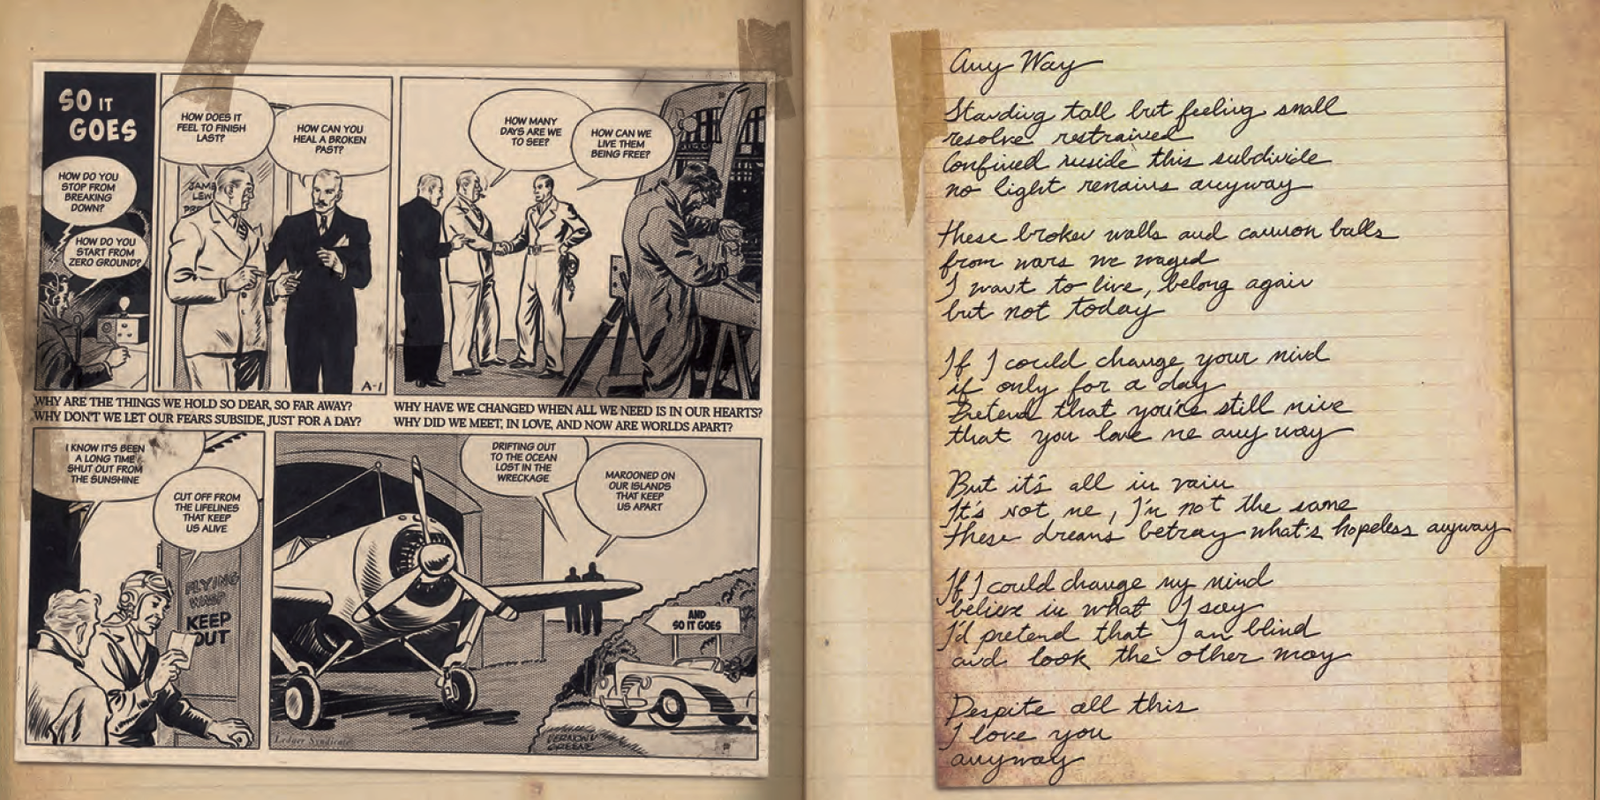 SO IT
GOES
HOW DO YOU
STOP FROM
BREAKING
DOWN?
HOW DO YOU
START FROM
ZERO GROUND?
HOW DOES IT
FEEL TO FINISH
LAST?
HOW CAN YOU
HEAL A BROKEN
PAST?
JAME
LEW
PRE
A-1
HOW MANY
DAYS ARE WE
TO SEE?
HOW CAN WE
LIVE THEM
BEING FREE?
WHY ARE THE THINGS WE HOLD SO DEAR, SO FAR AWAY?
WHY DON'T WE LET OUR FEARS SUBSIDE, JUST FOR A DAY?
WHY HAVE WE CHANGED WHEN ALL WE NEED IS IN OUR HEARTS?
WHY DID WE MEET, IN LOVE, AND NOW ARE WORLDS APART?
I KNOW IT'S BEEN
A LONG TIME
SHUT OUT FROM
THE SUNSHINE
CUT OFF FROM
THE LIFELINES
THAT KEEP
US ALIVE
FLYING
WASP
KEEP
OUT
DRIFTING OUT
TO THE OCEAN
LOST IN THE
WRECKAGE
MAROONED ON
OUR ISLANDS
THAT KEEP
US APART
AND
SO IT GOES
Ledger Syndicate
VERNON V
GREENE
Any Way
Standing tall but feeling small
resolve restrained
Confined inside this subdivide
no light remains anyway
these broken walls and cannon balls
from wars we waged
I want to live, belong again
but not today
If I could change your mind
if only for a day
Pretend that you're still mine
that you love me any way
But it's all in vain
It's not me, I'm not the same
these dreams betray what's hopeless anyway
If I could change my mind
believe in what I say
I'd pretend that I am blind
and look the other way
Despite all this
I love you
anyway